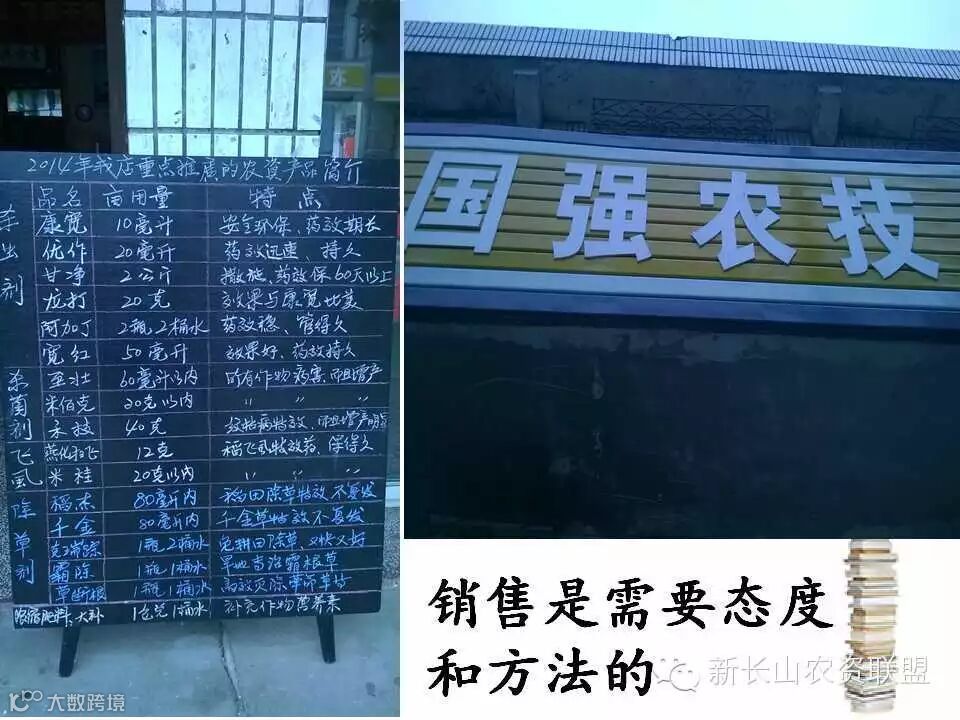 2014年我店重点推廣的农资产品简介
品名 亩用量 特点
杀虫剂
康宽 10毫升 安全环保、药效期长
优作 20毫升 药效迅速、持久
甘净 2公斤 撒施、药效保60天以上
垃打 20克 效果与康宽比美
阿加丁 2瓶2桶水 药效稳、管得久
宽红 50毫升 效果好、药效持久
杀菌剂
亚壮 60毫升以内 所有作物病害、而且增产
米佰克 20克以内 〃 〃 〃
禾技 40克 纹枯病特效、而且增产明显
飞虱
燕化和飞 12克 稻飞虱特效药、保得久
米桂 20克以内 〃 〃 〃
除草剂
稻杰 80毫升内 稻田除草特效不复发
千金 80毫升内 千金草特效不复发
克瑞踪 1瓶2桶水 免耕田除草、又快又好
霸除 1瓶1桶水 旱地专治霸根草
草断根 1瓶1桶水
浓缩肥料、大补 1包兑1桶水 补充作物营养素
国强农技
销售是需要态度
和方法的
新长山农资联盟
100 大数跨境